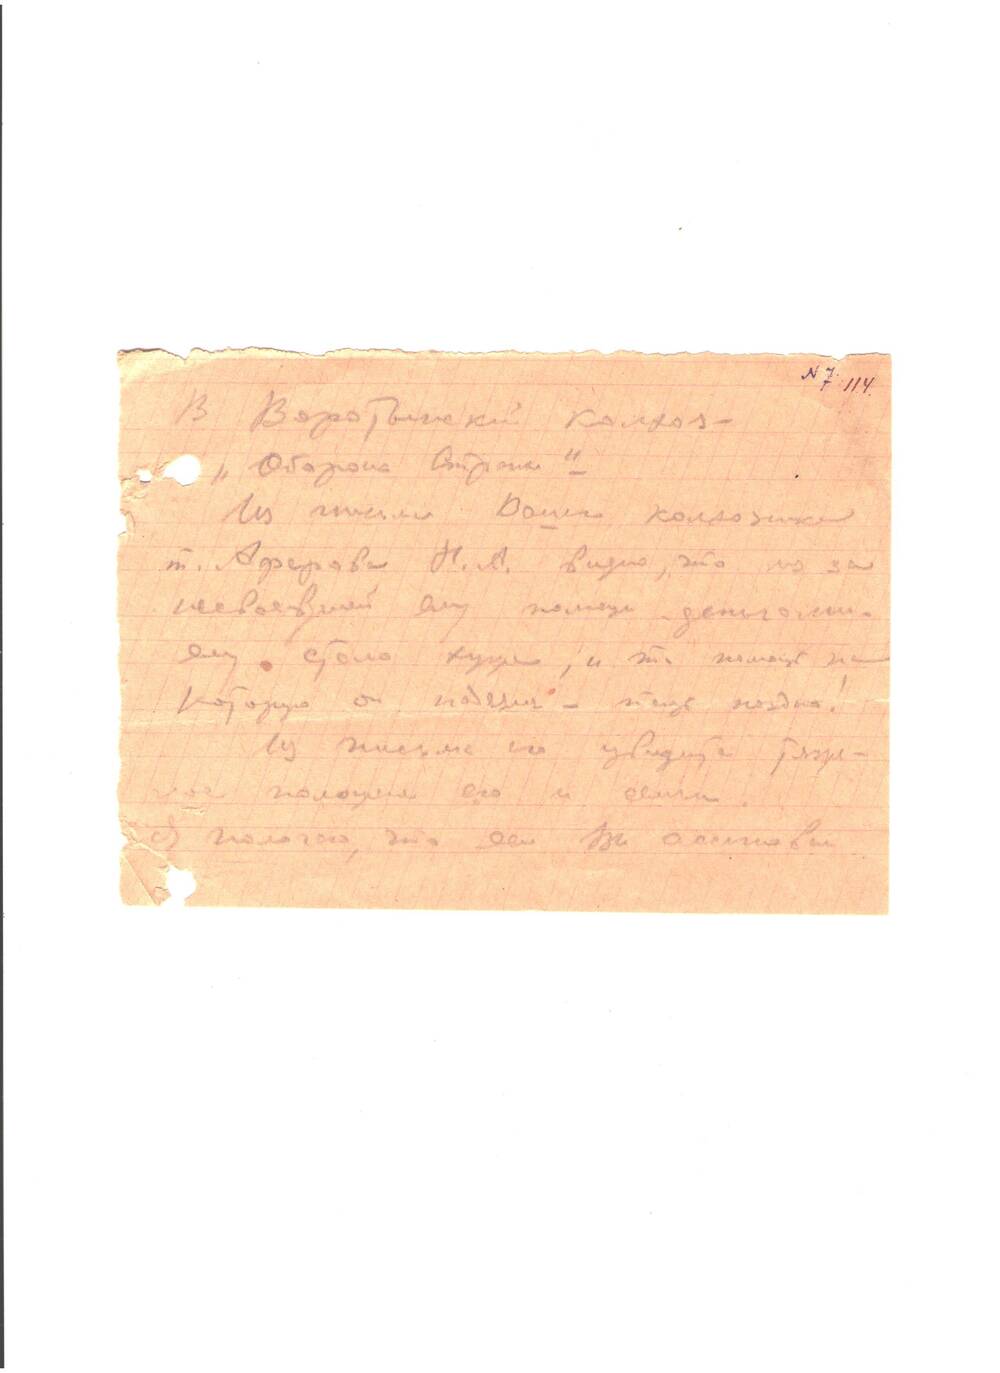 N 7. 114.
В Воротынский колхоз –
„Оборона Страны"
Из письма Вашего колхозника
т. Аферова Н. А. видно, что из за
ему помощи деньгами
ему стало хуже, и та помощь на
которую он надеялся –
Из письма его увидите тяже-
лое положение его и семьи.
Я полагаю, что если Вы